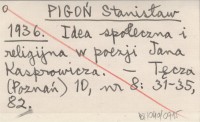 PIGOŃ Stanisław
1936. Idea społeczna i
religijna w poezji Jana
Kasprowicza. — Tęcza
(Poznań) 10, nr 8: 31-35,
82.